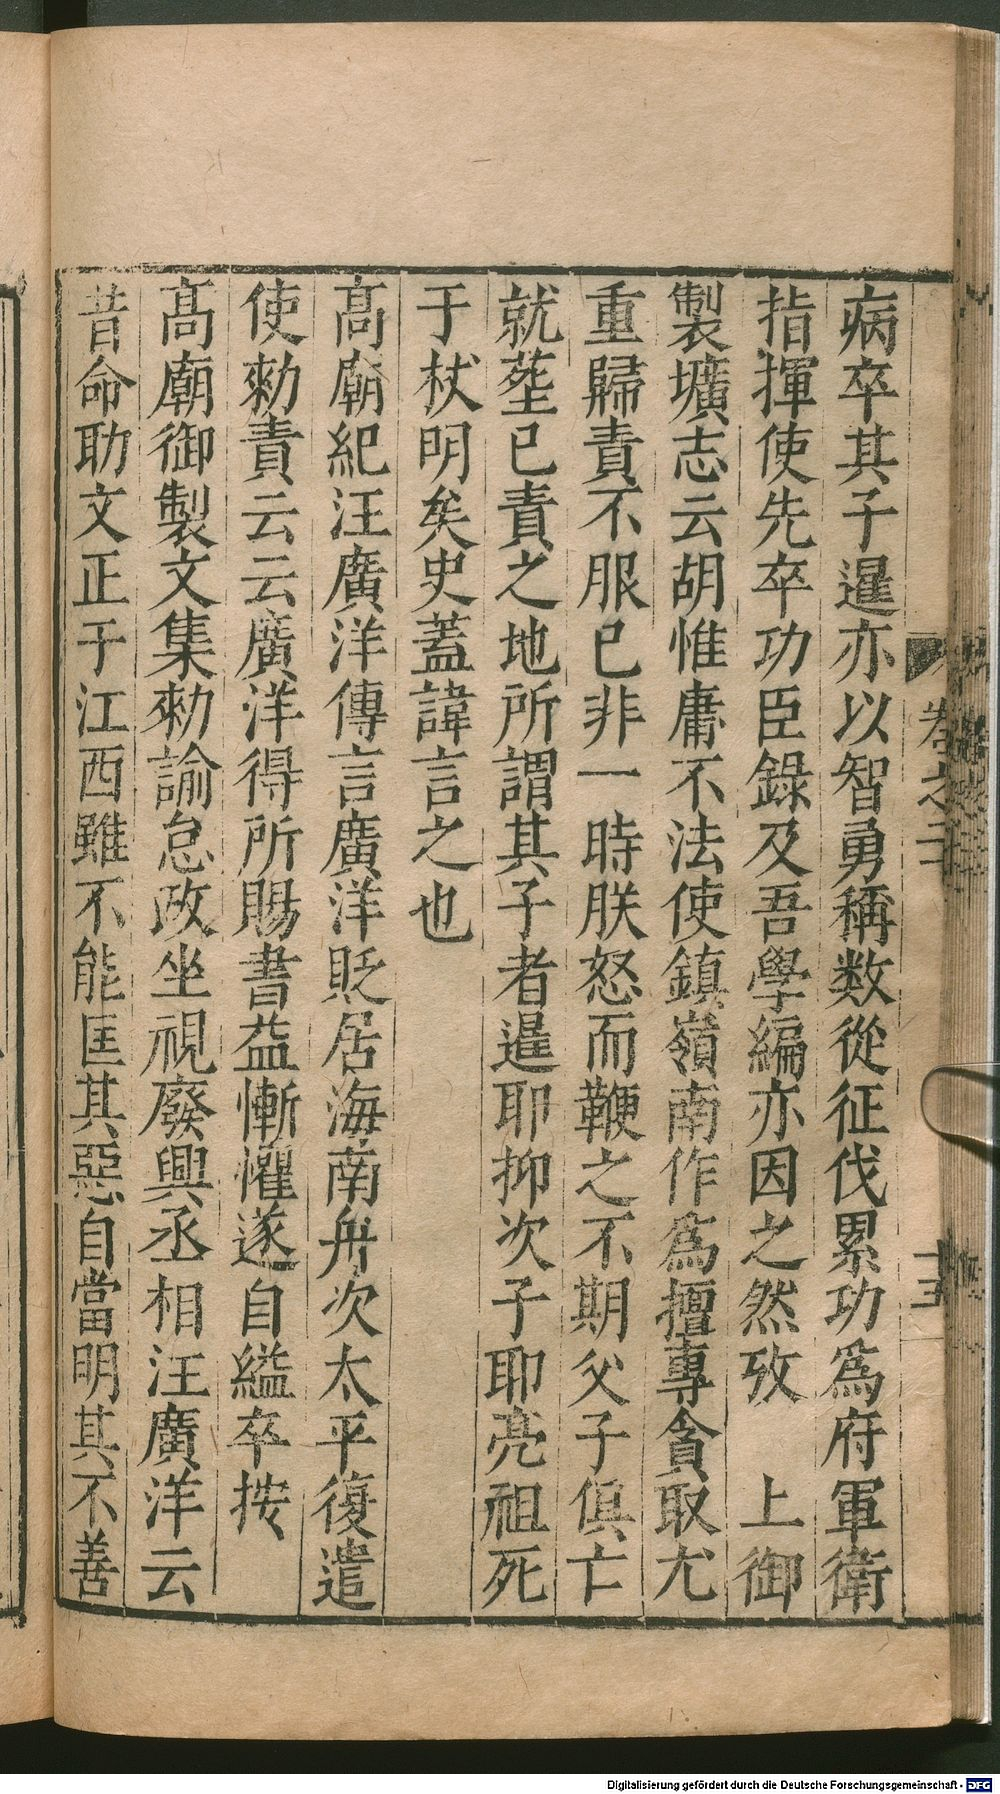 病卒其子暹亦以智勇稱数從征伐累功爲府軍衛
指揮使先卒功臣錄及吾學編亦因之然攷　上御
製壙志云胡惟庸不法使鎮嶺南作爲擅專貪取尤
重歸責不服已非一時朕怒而鞭之不期父子俱亡
就塟已責之地所謂其子者暹耶抑次子耶亮祖死
于杖明矣史蓋諱言之也
高廟紀汪廣洋傳言廣洋貶居海南舟次太平復遣
使勑責云云廣洋得所賜書益慚懼遂自縊卒按
高廟御製文集勑諭怠政坐視廢興丞相汪廣洋云
昔命助文正于江西雖不能匡其惡自當明其不善
卷之二
十五
Digitalisierung gefördert durch die Deutsche Forschungsgemeinschaft - DFG